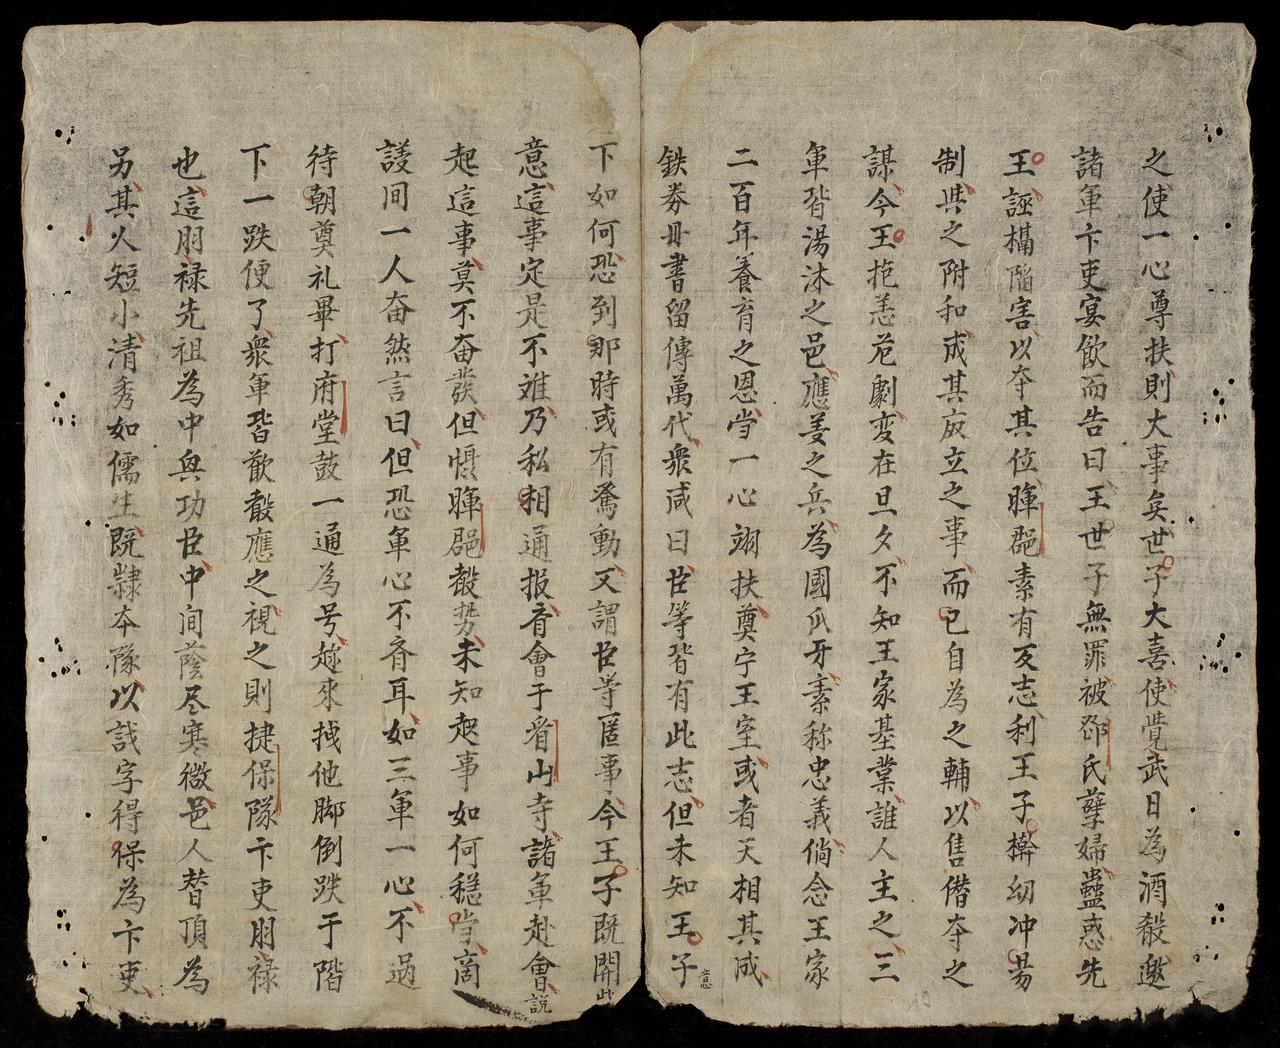 之使一心尊扶則大事矣世子大喜使覺武日為酒殺邀
諸軍卞吏宴飲而告曰王世子無罪被鄧氏孽婦蠱惑先
王誣搆陥害以夺其位暉郡素有反志利王子檊幼冲昜
制與之附和成其廃立之事而已自為之輔以售僭夺之
謀今王抱恙危劇変在旦夕不知王家基業誰人主之三
軍皆湯沐之邑應義之兵為國爪牙素称忠義倘念王家
二百年養育之恩当一心翊扶奠宁王室或者天相其成
鉄券丹書留傳萬代衆咸曰臣等皆有此志但未知王子意
下如何恐到那時或有驚動又謂臣等匿事今王子既開此
意這事定是不难乃私相通报斉會于看山寺諸軍赴會説
起這事莫不奋發但惧暉郡聲势未知起事如何穏当商
議间一人奋然言曰但恐軍心不斉耳如三軍一心不過
待朝奠礼畢打府堂鼓一通為号趂來拽他脚倒跌于階
下一跌便了衆軍皆歡聲應之視之則捷保隊卞吏朋禄
也這朋禄先祖為中興功臣中间蔭尽寒微邑人替頂為
另其人短小清秀如儒生既隷夲隊以識字得保為卞吏